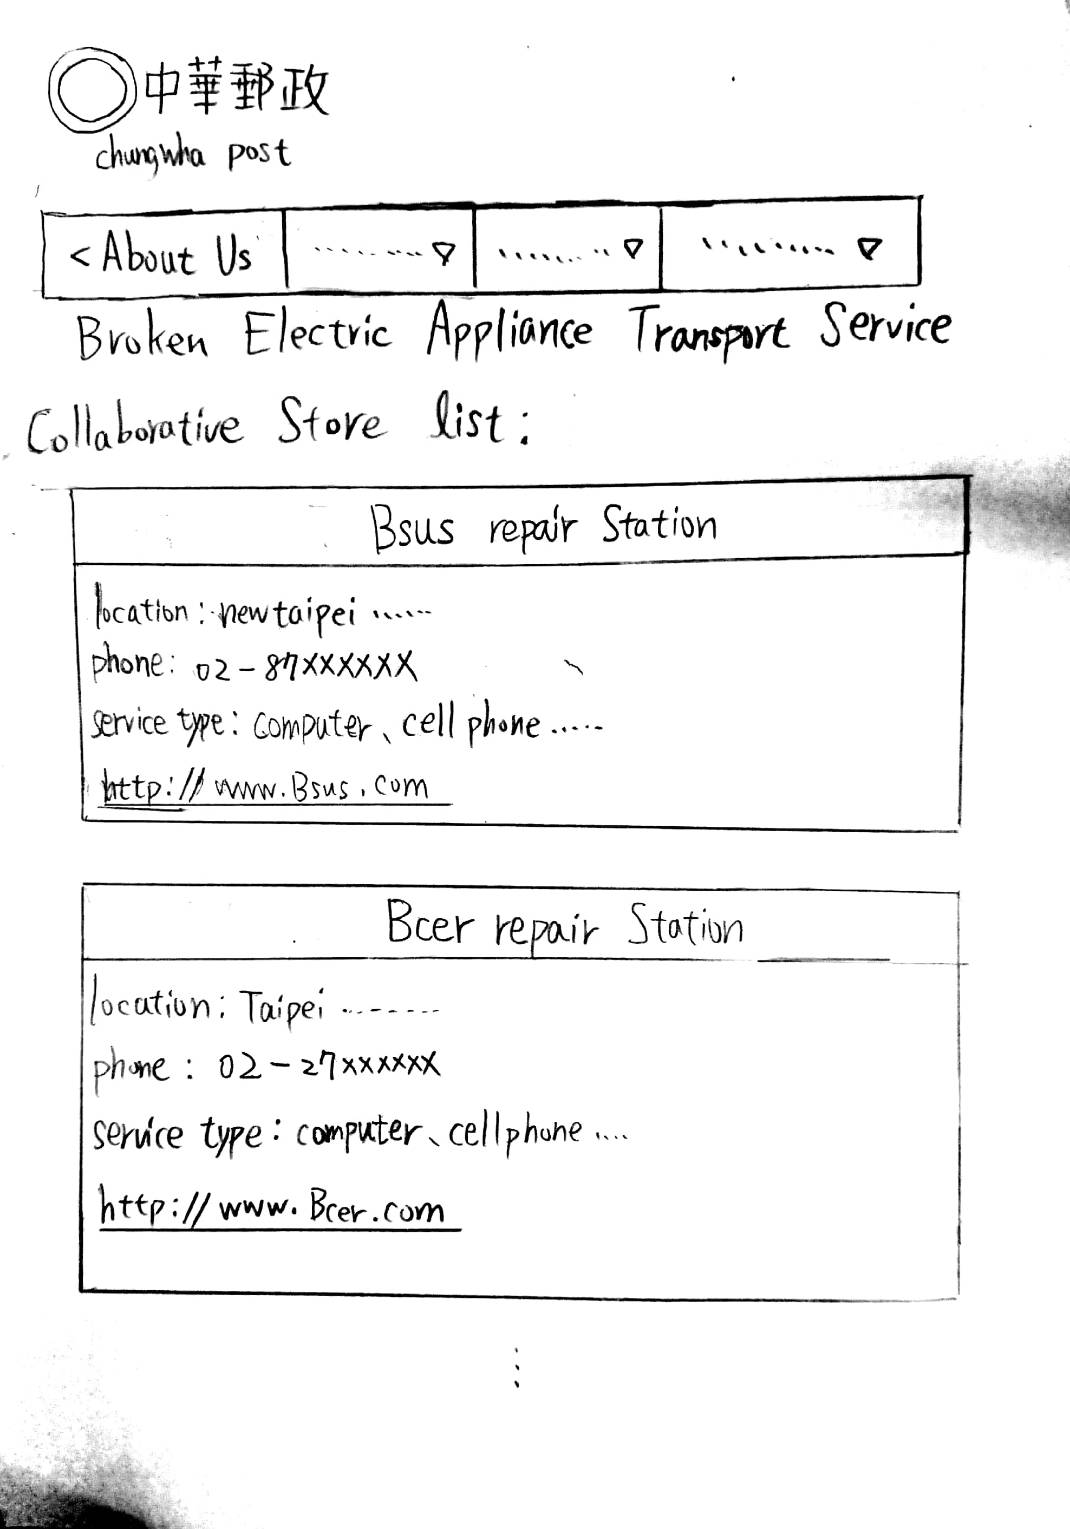 中華郵政
chungwha post
< About Us ............ ▽ ............ ▽ ............ ▽
Broken Electric Appliance Transport Service
Collaborative Store list:
Bsus repair Station
location: newtaipei ......
phone: 02-87XXXXXX
service type: computer、cell phone .....
http://www.Bsus.com
Bcer repair Station
location: Taipei ........
phone: 02-27xxxxxx
service type: computer、cellphone ....
http://www.Bcer.com
⋮